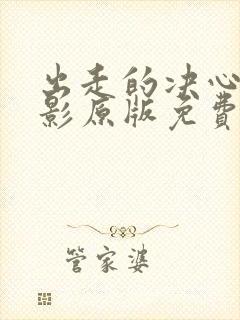 出走的决心
影原版免費
管家婆